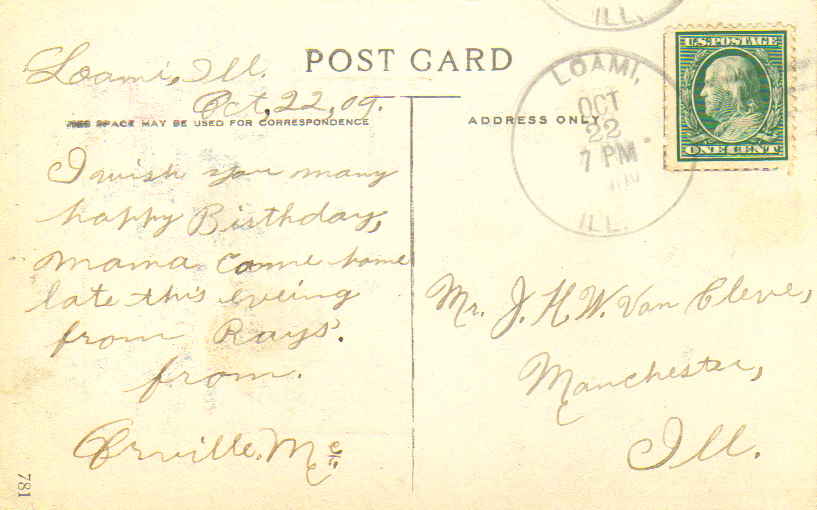 ILL.
POST CARD
U.S. POSTAGE
ONE CENT
LOAMI,
OCT
22
7 PM
ILL.
Loami, Ill.
Oct, 22, 09.
THIS SPACE MAY BE USED FOR CORRESPONDENCE
ADDRESS ONLY
I wish you many
happy Birthday,
mama came home
late this eveing
from Rays'.
from.
Orville. Mc
Mr. J. H. W. Van Cleve,
Manchester,
Ill.
781